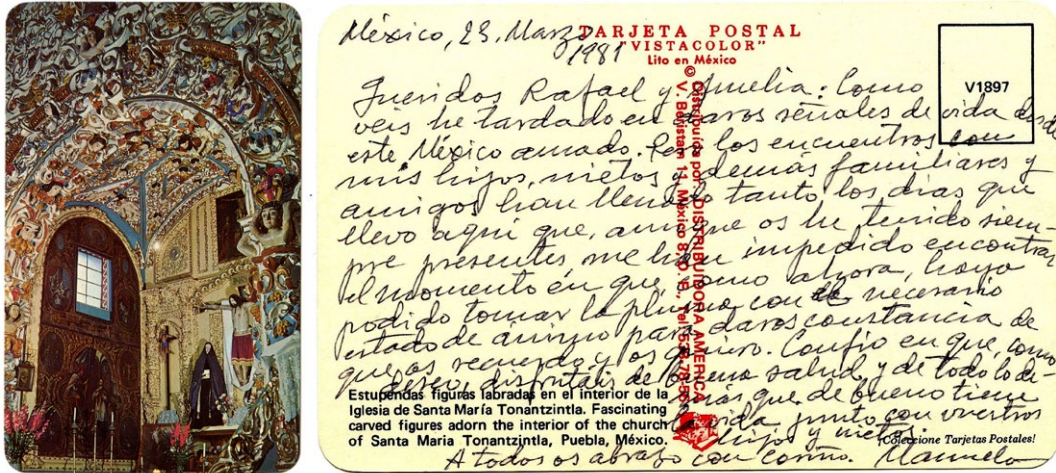 México, 23, Marzo
1981
TARJETA POSTAL
"VISTACOLOR"
Lito en México
V1897
Queridos Rafael y Amelia: Como
véis he tardado en daros señales de vida desde
este México amado. Pero los encuentros con
mis hijos, nietos y demás familiares y
amigos han llenado tanto los días que
llevo aquí que, aunque os he tenido siem-
pre presentes me han impedido encontrar
el momento en que, como ahora, haya
podido tomar la pluma con el necesario
estado de ánimo para daros constancia de
que os recuerdo y os quiero. Confío en que, como
deseo, disfrutáis de buena salud y de todo lo de-
más que de bueno tiene
la vida junto con vuestros
hijos y nietos.
A todos os abrazo con cariño. Manuela
© Distribuida por DISTRIBUIDORA AMERICA
V. Beristain 11, México 8, D. F., Tel.
Estupendas figuras labradas en el interior de la
Iglesia de Santa María Tonantzintla. Fascinating
carved figures adorn the interior of the church
of Santa Maria Tonantzintla, Puebla, México.
¡Coleccione Tarjetas Postales!